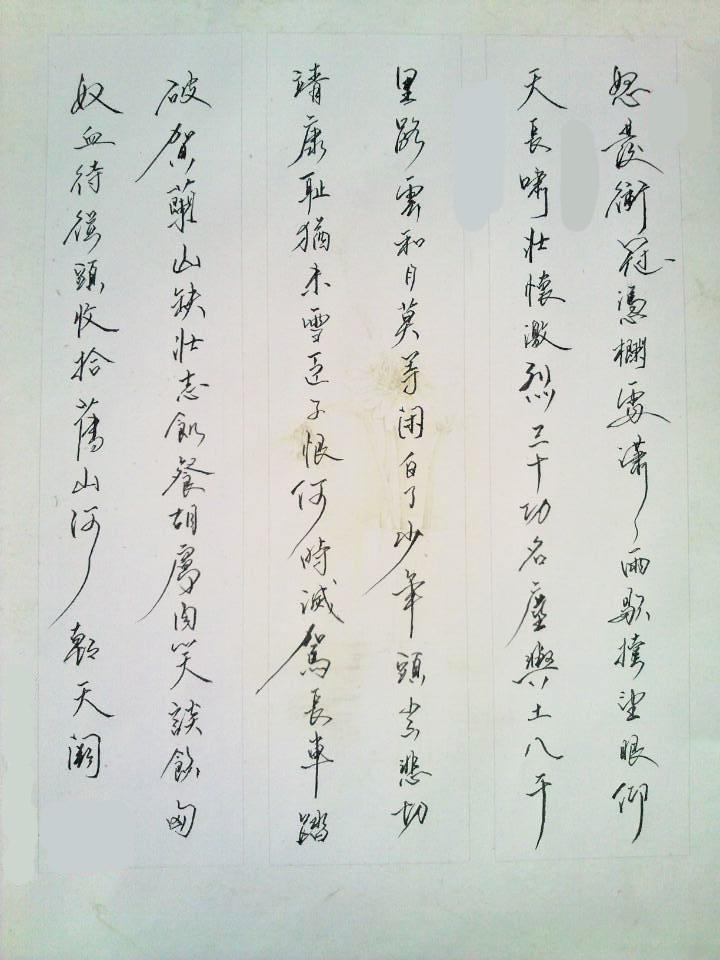 怒髮衝冠憑欄處瀟〻雨歇擡望眼仰
天長嘯壯懷激烈三十功名塵與土八千
里路雲和月莫等閑白了少年頭空悲切
靖康恥猶未雪臣子恨何時滅駕長車踏
破賀蘭山缺壯志飢餐胡虜肉笑談飲匈
奴血待從頭收拾舊山河朝天闕